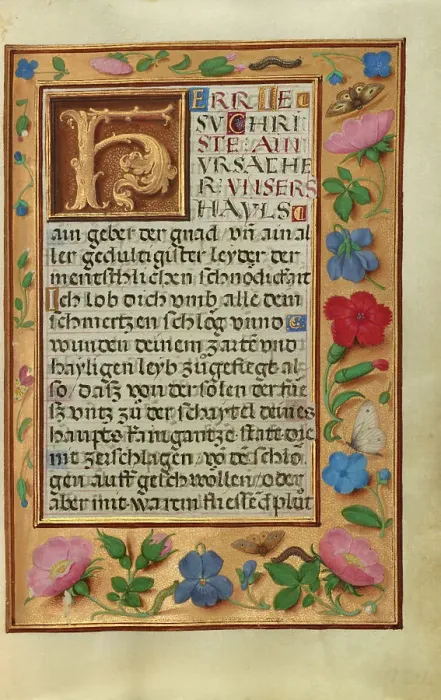 HERR IE
SV CHRI
STE AIN
VRSACHE
R VNSERS
HAYLS
ain geber der gnad vñ ain al
ler gedultigister leyder der
mentschlichen schnödickait
Ich lob dich vmb alle dein
schmertzen schlög vund
wunden deinem zartē vnd
hayligen leyb zůgefiegt al
so / dasz von der solen der füe
sz vntz zů der schaytel deines
haupts kain gantze statt die
nit zerschlagen / võ dē schlö
gen auff geschwollen / oder
aber mit warm fliessēd plůt